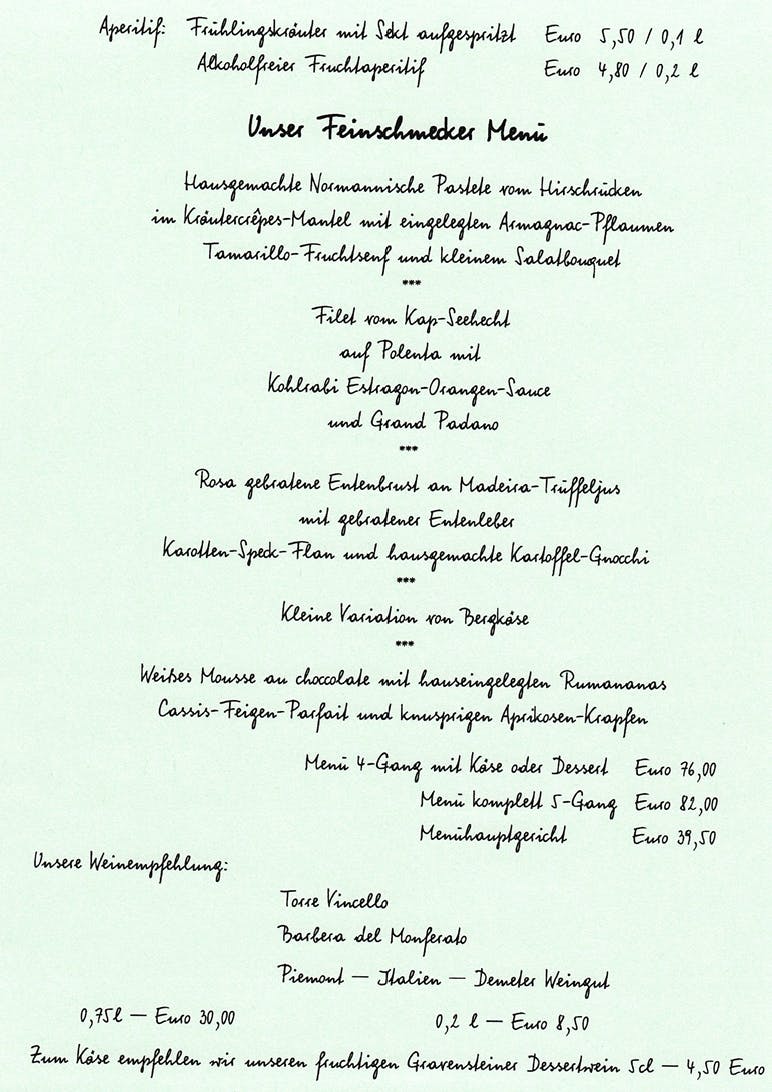 Aperitif: Frühlingskräuter mit Sekt aufgespritzt Euro 5,50 / 0,1 l
Alkoholfreier Fruchtaperitif Euro 4,80 / 0,2 l
Unser Feinschmecker Menü
Hausgemachte Normannische Pastete vom Hirschrücken
im Kräutercrêpes-Mantel mit eingelegten Armagnac-Pflaumen
Tamarillo-Fruchtsenf und kleinem Salatbouquet
***
Filet vom Kap-Seehecht
auf Polenta mit
Kohlrabi Estragon-Orangen-Sauce
und Grand Padano
***
Rosa gebratene Entenbrust an Madeira-Trüffeljus
mit gebratener Entenleber
Karotten-Speck-Flan und hausgemachte Kartoffel-Gnocchi
***
Kleine Variation von Bergkäse
***
Weißes Mousse au choccolate mit hauseingelegten Rumananas
Cassis-Feigen-Parfait und knusprigen Aprikosen-Krapfen
Menü 4-Gang mit Käse oder Dessert Euro 76,00
Menü komplett 5-Gang Euro 82,00
Menühauptgericht Euro 39,50
Unsere Weinempfehlung:
Torre Vincello
Barbera del Monferato
Piemont – Italien – Demeter Weingut
0,75l – Euro 30,00 0,2 l – Euro 8,50
Zum Käse empfehlen wir unseren fruchtigen Gravensteiner Dessertwein 5cl – 4,50 Euro